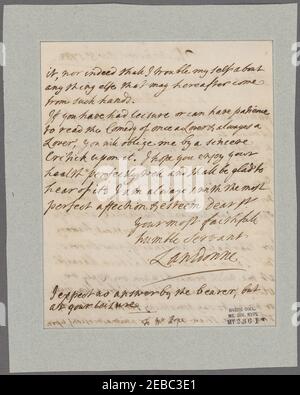 it, nor indeed shall I trouble my self about
any thing else that may hereafter come
from such hands.
If you have had leisure or can have patience
to read the Comedy of once a Lover & always a
Lover, you will oblige me by a sincere
Critick upon it. I hope you enjoy your
health perfectly well and shall be glad to
hear of it. I am always with the most
perfect affection & esteem Dear Sr
your most faithfull
humble servant.
Lansdowne
I expect no answer by the bearer, but
at your leisure.
To Mr Pope
alamy
Image ID: 2EBC3E1
www.alamy.com